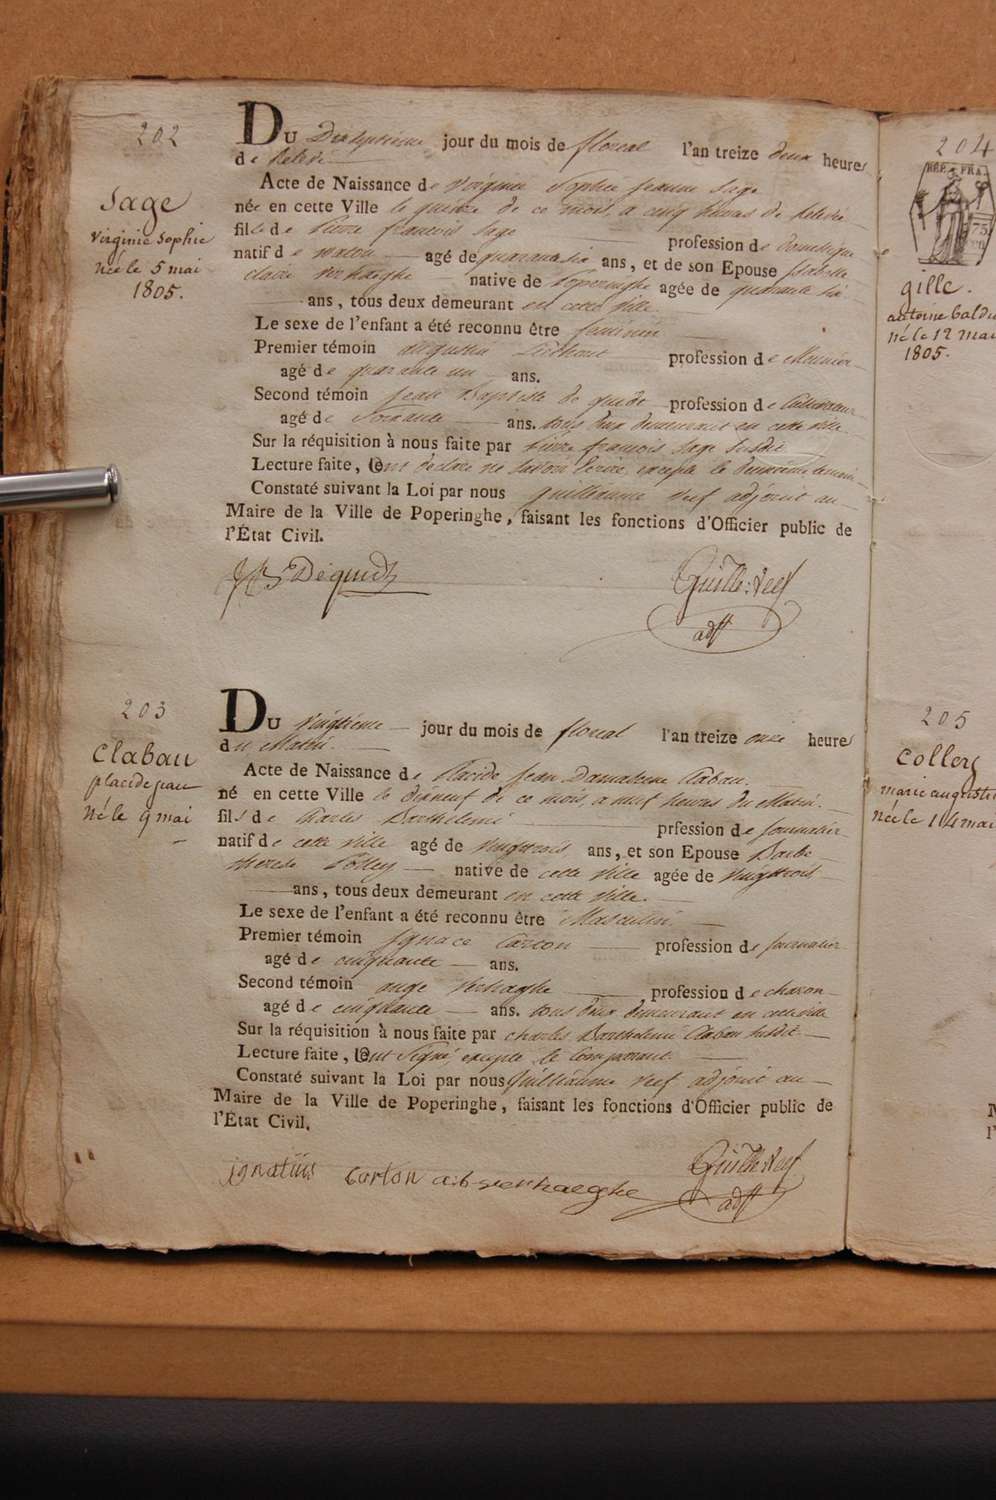 202
Sage
Virginie Sophie
née le 5 mai
1805.
DU Dixseptieme jour du mois de floreal l'an treize deux heures
de Relevé
Acte de Naissance de Virginie Sophie Jeanne Sage
née en cette Ville le quinze de ce mois, a cinq heures de Relevée
fille de Pierre francois Sage profession de Domestique
natif de Watou agé de quarante six ans, et de son Epouse Isabelle
claire Verhaeghe native de Poperinghe agée de quarante six
ans, tous deux demeurant en cette ville
Le sexe de l'enfant a été reconnu être feminin
Premier témoin augustin profession de Meunier
agé de quarante un ans.
Second témoin Jean Baptiste de quidt profession de Cultivateur
agé de Soixante ans. tous deux demeurant en cette ville
Sur la réquisition à nous faite par Pierre françois Sage Susdit
Lecture faite, ont declaré ne savoir Ecrire, excepté le deuxieme temoin
Constaté suivant la Loi par nous guilleaume Neef adjoint au
Maire de la Ville de Poperinghe, faisant les fonctions d'Officier public de
l'État Civil.
JB Dequidt Guille: Neef
adjt
203
Clabau
placide jean
Né le 9 mai
DU Vingtieme jour du mois de floreal l'an treize onze heures
du Matin.
Acte de Naissance de Placide Jean Damascene Clabau.
né en cette Ville le dixneuf de ce mois, a neuf heures du Matin.
fils de Charles Barthelemi prfession de journalier
natif de cette ville agé de vingttrois ans, et son Epouse Barbe
therese Colley native de cette ville agée de vingttrois
ans, tous deux demeurant en cette ville.
Le sexe de l'enfant a été reconnu être Masculin.
Premier témoin Ignace Carton profession de journalier
agé de cinquante ans.
Second témoin ange Verhaeghe profession de charon
agé de cinquante ans. tous deux demeurant en cette ville
Sur la réquisition à nous faite par charles Barthelemi Clabau susdit
Lecture faite, ont Signé, excepté le Comparant
Constaté suivant la Loi par nous Guilleaume Neef adjoint au
Maire de la Ville de Poperinghe, faisant les fonctions d'Officier public de
l'État Civil.
ignatius carton a:b: verhaeghe Guille: Neef
adjt
204
RÉP. FRA.
75
gille.
antoine baldu
né le 12 mai
1805.
205
Colley
marie augusti
née le 14 mai